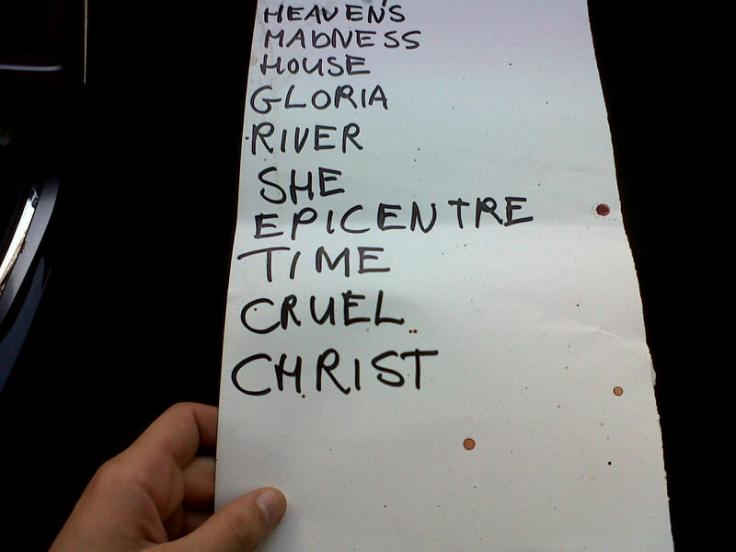 HEAVEN'S
MADNESS
HOUSE
GLORIA
RIVER
SHE
EPICENTRE
TIME
CRUEL
CHRIST